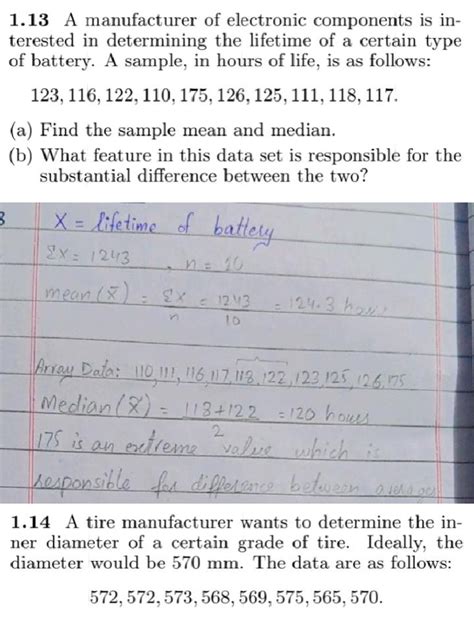 1.13 A manufacturer of electronic components is in-
terested in determining the lifetime of a certain type
of battery. A sample, in hours of life, is as follows:
123, 116, 122, 110, 175, 126, 125, 111, 118, 117.
(a) Find the sample mean and median.
(b) What feature in this data set is responsible for the
substantial difference between the two?
X = lifetime of battery
Σx = 1243 , n = 10
mean (x̄) = Σx/n = 1243/10 = 124.3 hours
Array Data: 110, 111, 116, 117, 118, 122, 123, 125, 126, 175
Median (x̃) = 118+122/2 = 120 hours
175 is an extreme value which is
responsible for difference between averages
1.14 A tire manufacturer wants to determine the in-
ner diameter of a certain grade of tire. Ideally, the
diameter would be 570 mm. The data are as follows:
572, 572, 573, 568, 569, 575, 565, 570.